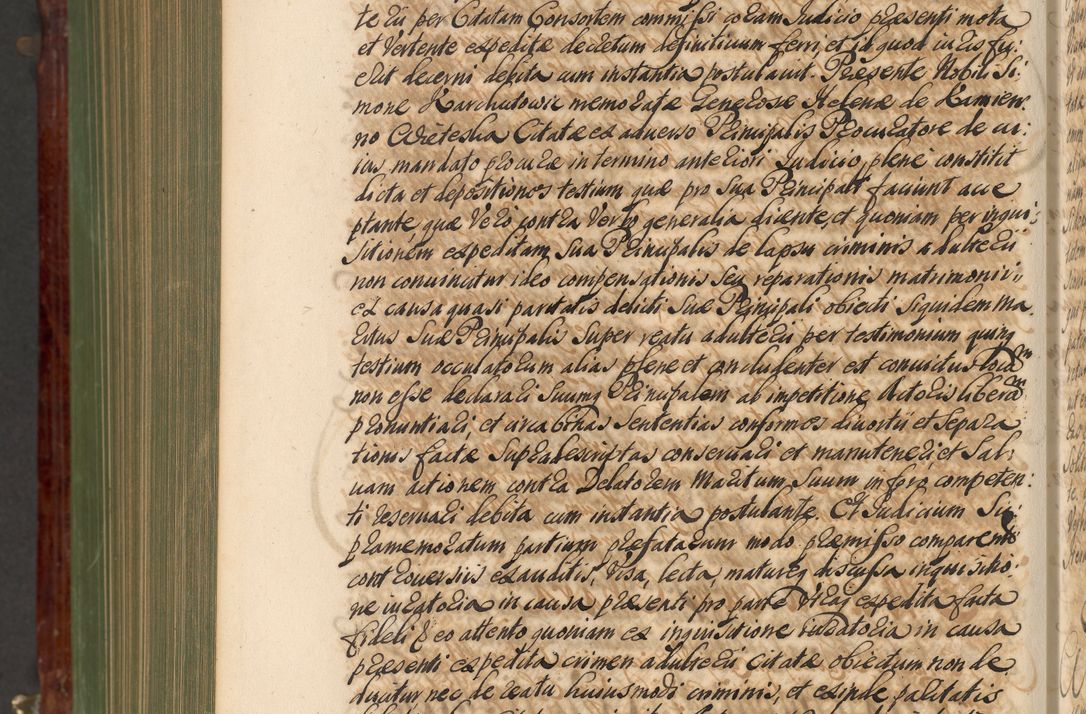 te eii per Citatam Consortem commissi coram Judicio præsenti mota
et Vertente expeditæ decretum definitivum ferri, et id quod iuris fu:
erit decerni debita cum instantia postulavit. Præsente Nobili Si:
mone Karchutowic memoratæ Generosæ Helenæ de Kamien:
no Citatæ ex adverso Principalis Procuratore de cu:
ius mandato procuræ in termino anteriori Judicio plene constitit
dicta et depositiones testium quæ pro Sua Principali faciunt acce
ptante, quæ Vero contra Verbo generalia dicente, et quoniam per inqui:
sitionem expeditam Sua Principalis de lapsu criminis adulterii
non convincitur ideo compensationis seu reparationis matrimonii
ex causa quasi paritatis delicti Suæ Principali obiecti siquidem ma
ritus Suæ Principalis super reatu adulterii per testimonium quinq
testium occulatorum alias plene et concludenter est convictus locum
non esse declarari Suamq Principalem ab impetitione Actoris liberam
pronuntiari, et circa binas Sententias conformes divortii et separa
tionis factæ Supradescriptas conservari et manuteneri et Sal:
vam actionem contra Delatorem Maritum Suum in foro competen:
ti reservari debita cum instantia postulante. Et Judicium Su:
pramemoratum partium præfatarum modo præmisso comparentium
controversiis exauditis, Visa, lecta, matureq discussa inquisitio:
ne iuratoria in causa præsenti pro parte expedita facta
fideli eo attento quoniam ex inquisitione iuratoria in causa
præsenti expedita crimen adulterii Citatæ obiectum non de
ducitur, nec de reatu huiusmodi criminis, et exinde paritatis